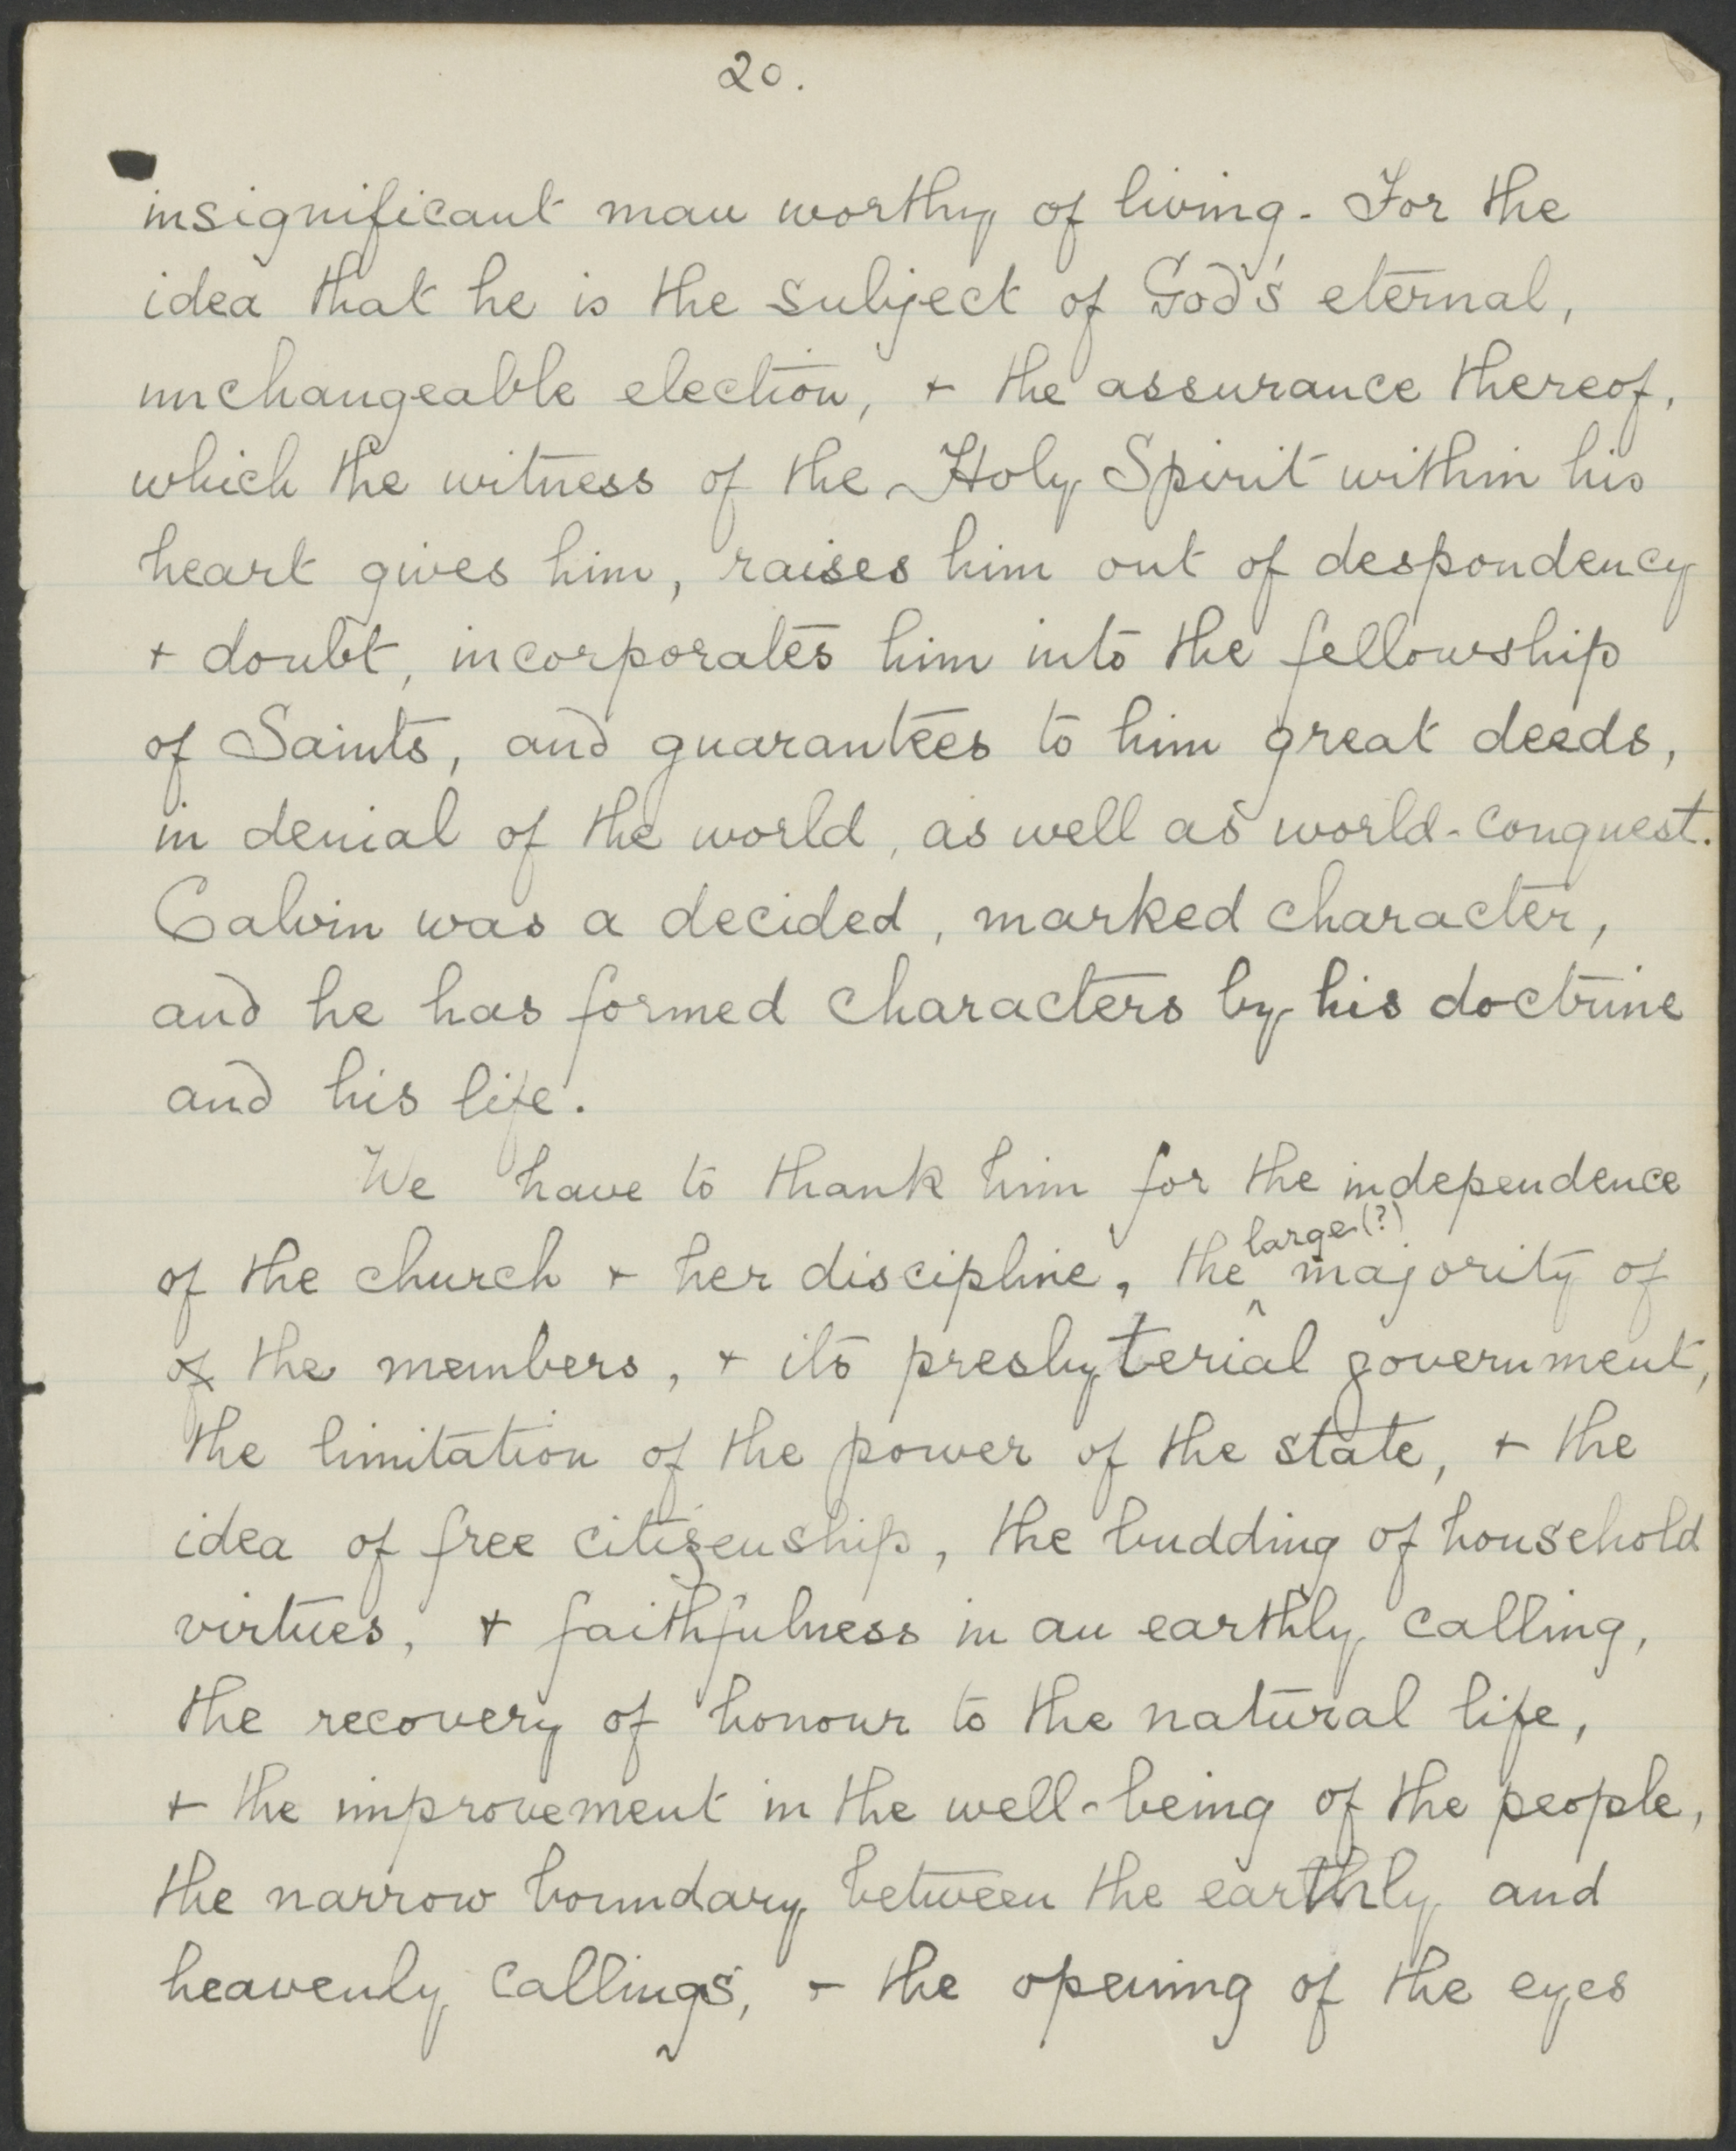 20.
insignificant man worthy of living. For the
idea that he is the subject of God's eternal,
unchangeable election, + the assurance thereof,
which the witness of the Holy Spirit within his
heart gives him, raises him out of despondency
+ doubt, incorporates him into the fellowship
of Saints, and guarantees to him great deeds,
in denial of the world, as well as world-conquest.
Calvin was a decided, marked character,
and he has formed characters by his doctrine
and his life.
We have to thank him for the independence
large(?)
of the church + her discipline, the ^ majority of
of the members, + its presbyterial government,
the limitation of the power of the state, + the
idea of free citizenship, the budding of household
virtues, + faithfulness in an earthly calling,
the recovery of honour to the natural life,
+ the improvement in the well-being of the people,
the narrow boundary between the earthly and
heavenly callings, + the opening of the eyes